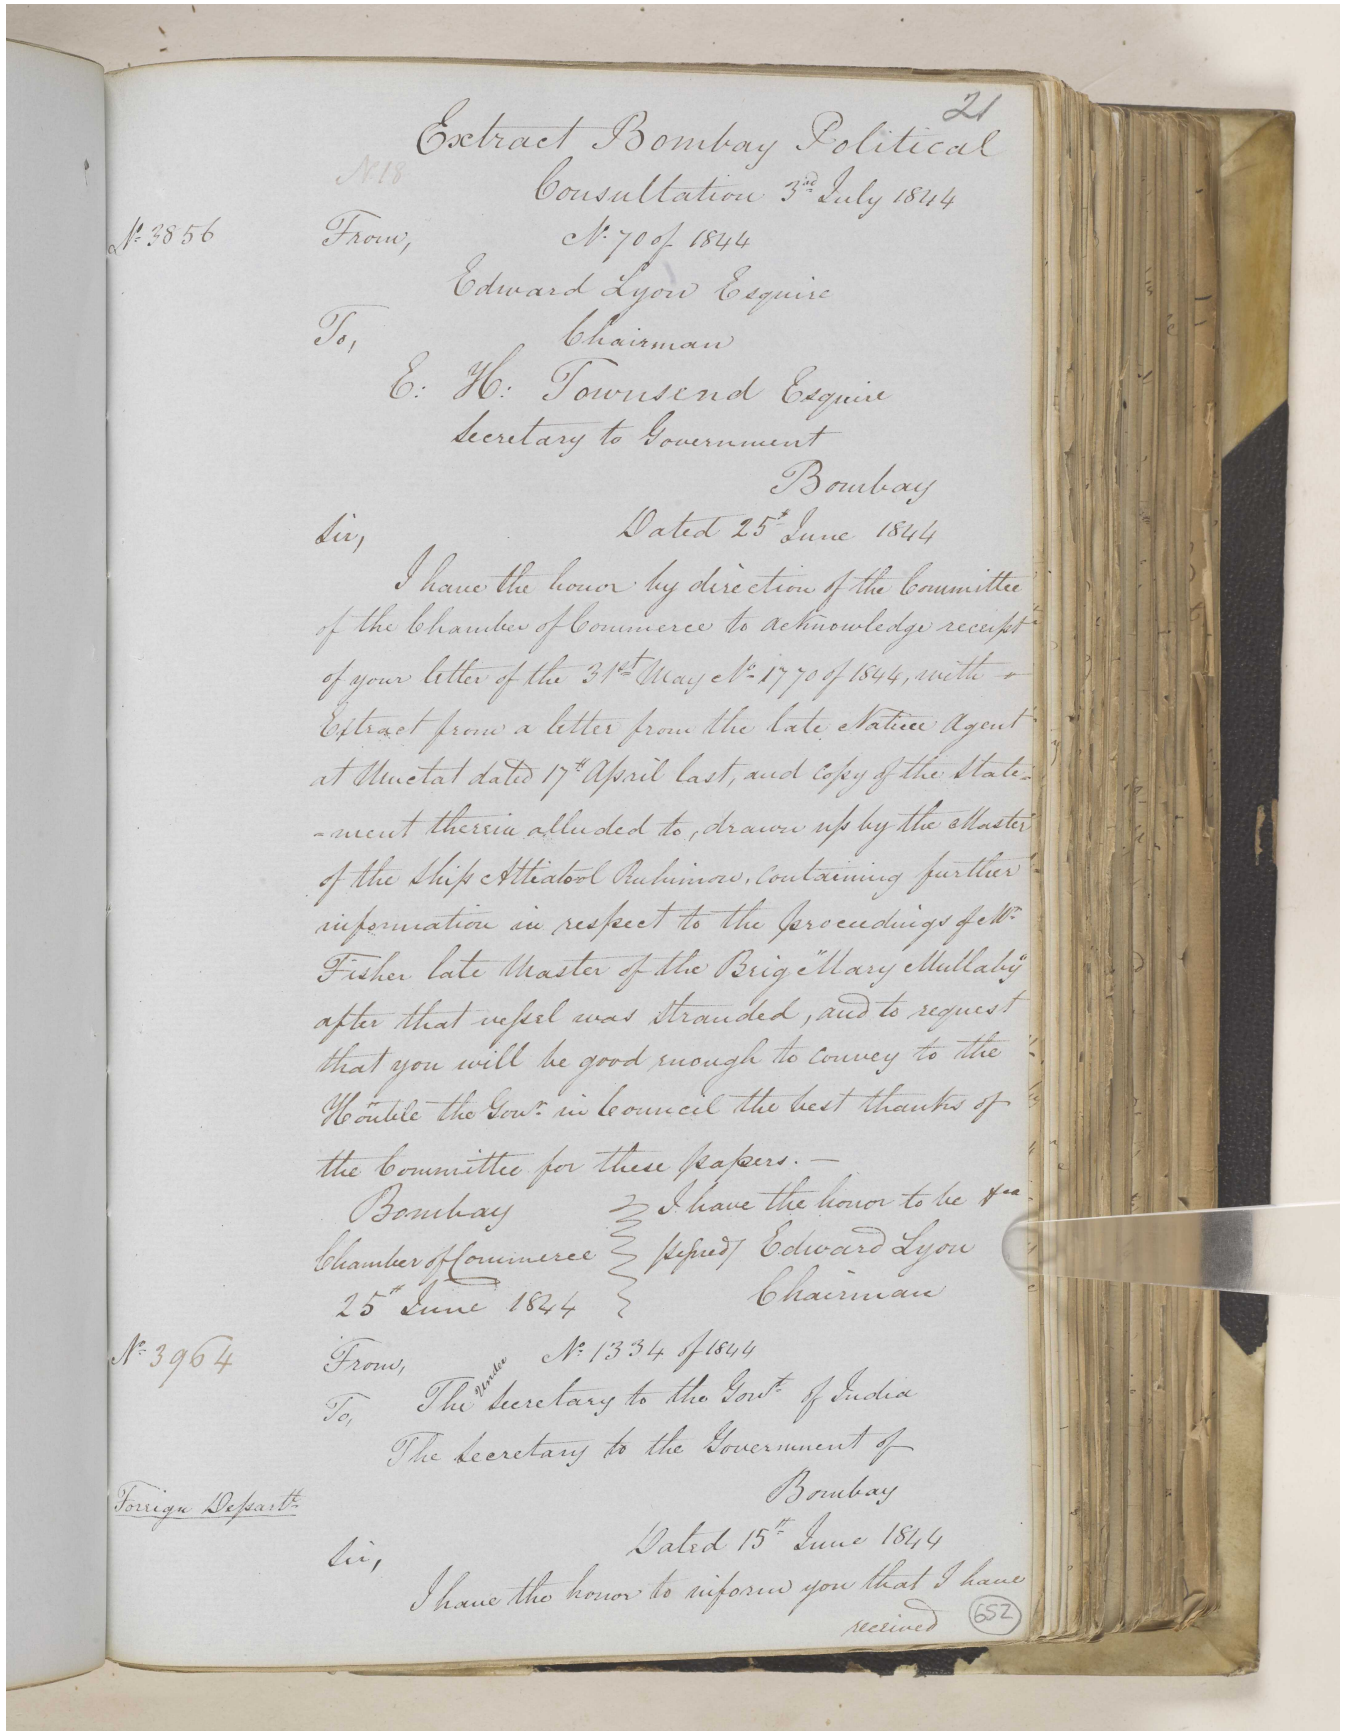 21
Extract Bombay Political
No 18
Consultation 3rd July 1844
No 3856
From, No 70 of 1844
Edward Lyon Esquire
To, Chairman
E: H: Townsend Esquire
Secretary to Government
Bombay
Sir, Dated 25th June 1844
I have the honor by direction of the Committee
of the Chamber of Commerce to acknowledge receipt
of your letter of the 31st May No 1770 of 1844, with
Extract from a letter from the late Native Agent
at Muctat dated 17th April last, and copy of the State=
=ment therein alluded to, drawn up by the Master
of the Ship Attiatool Ruhimon, containing further
information in respect to the proceedings of Mr
Fisher late Master of the Brig "Mary Mullaby"
after that vessel was stranded, and to request
that you will be good enough to convey to the
Honble the Govr in Council the best thanks of
the Committee for these papers. —
Bombay I have the honor to be &ca
Chamber of Commerce signed/ Edward Lyon
25th June 1844 Chairman
No 3964
From, No 1334 of 1844
The Under Secretary to the Govt of India
To,
The Secretary to the Government of
Bombay
Foreign Departt
Dated 15th June 1844
Sir,
I have the honor to inform you that I have
received
652